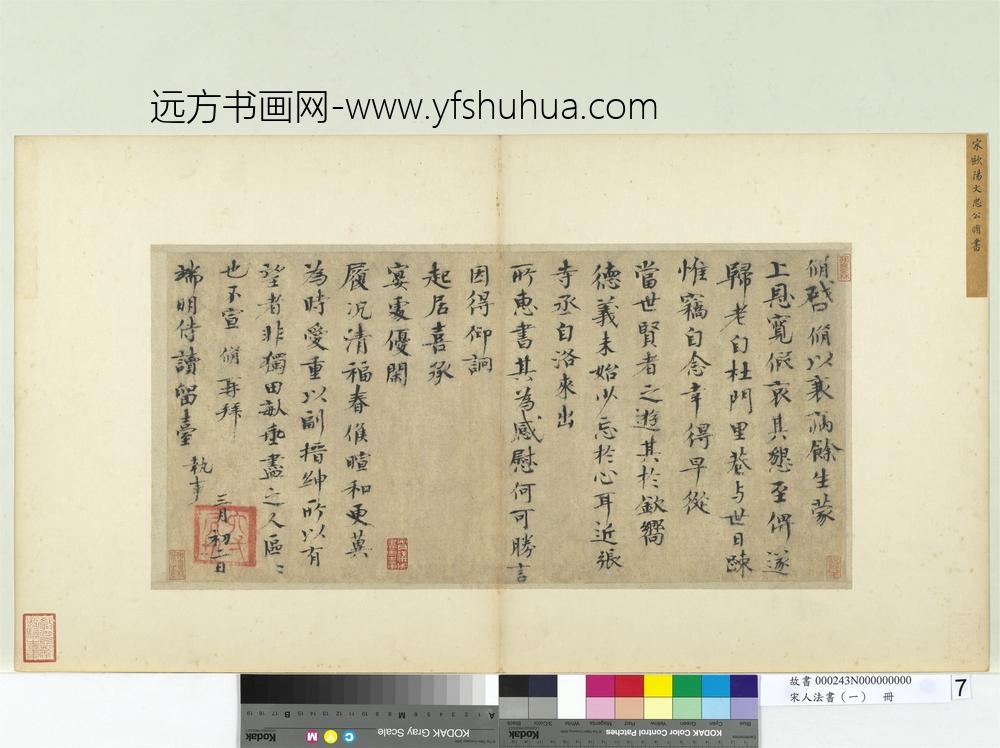 远方书画网-www.yfshuhua.com
宋歐陽文忠公脩書
脩啓脩以衰病餘生蒙
上恩寬假哀其懇至俾遂
歸老自杜門里巷与世日踈
惟竊自念幸得早從
當世賢者之遊其於欽嚮
德義未始少忘於心耳近張
寺丞自洛來出
所惠書其為感慰何可勝言
因得仰詗
起居喜承
宴處優閑
履況清福春候暄和更冀
為時愛重以副搢紳所以有
望者非獨田畝垂盡之人區〻
也不宣 脩再拜
端明侍讀留臺 執事
三月初二日
故書 000243N000000000
宋人法書（一） 冊
7
KODAK Gray Scale
Kodak
C
Y
M
A 1 2 3 4 5 6 M 8 9 10 11 12 13 14 15 B 17 18 19
KODAK Color Control Patches
Kodak
Blue
Cyan
Green
Yellow
Red
Magenta
White
3/Color
Black